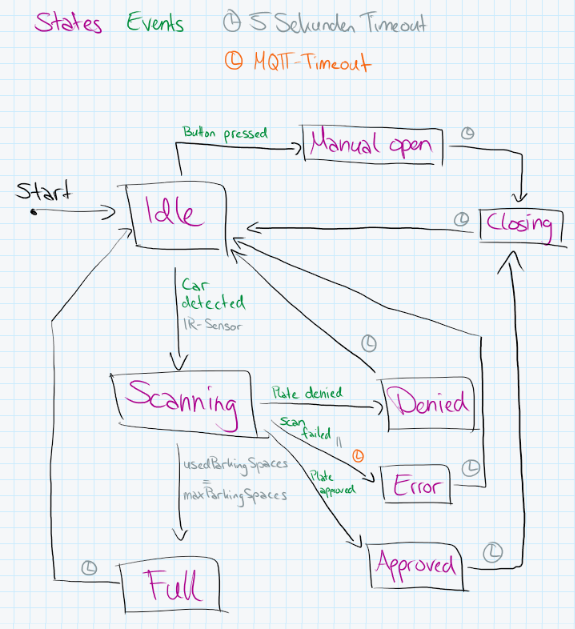 States Events 5 Sekunden Timeout
MQTT-Timeout
Button pressed
Manual open
Start
Idle
Closing
Car
detected
IR-Sensor
Scanning
Plate denied
Denied
Scan
failed ||
usedParkingSpaces
=
maxParkingSpaces
Plate
approved
Error
Full
Approved